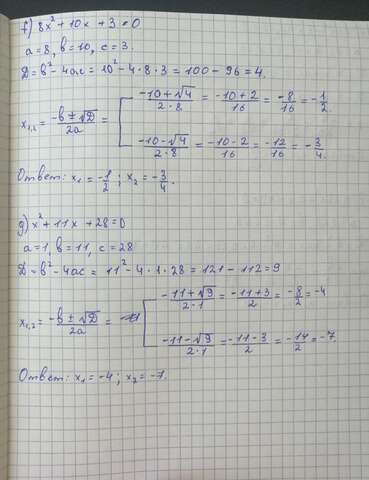 f) 8x² + 10x + 3 = 0
a = 8, b = 10, c = 3.
D = b² - 4ac = 10² - 4·8·3 = 100 - 96 = 4.
x₁,₂ = (-b ± √D)/2a = [ (-10 + √4)/(2·8) = (-10 + 2)/16 = -8/16 = -1/2
(-10 - √4)/(2·8) = (-10 - 2)/16 = -12/16 = -3/4.
Ответ: x₁ = -1/2; x₂ = -3/4.
g) x² + 11x + 28 = 0
a = 1, b = 11, c = 28
D = b² - 4ac = 11² - 4·1·28 = 121 - 112 = 9
x₁,₂ = (-b ± √D)/2a = [ (-11 + √9)/(2·1) = (-11 + 3)/2 = -8/2 = -4
(-11 - √9)/(2·1) = (-11 - 3)/2 = -14/2 = -7.
Ответ: x₁ = -4; x₂ = -7.